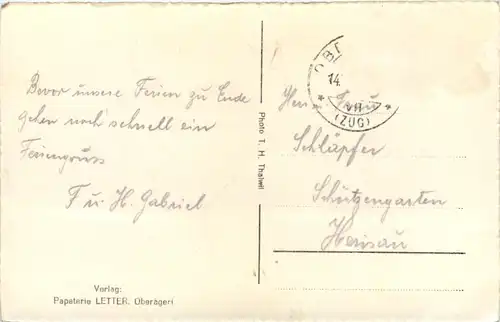 Bevor unsere Ferien zu Ende
gehen noch schnell ein
Feriengruss
F u. H. Gabriel
Verlag:
Papeterie LETTER, Oberägeri
Photo T. H. Thalwil
14.
VII
(ZUG)
Frau
Schläpfer
Schützengarten
Herisau